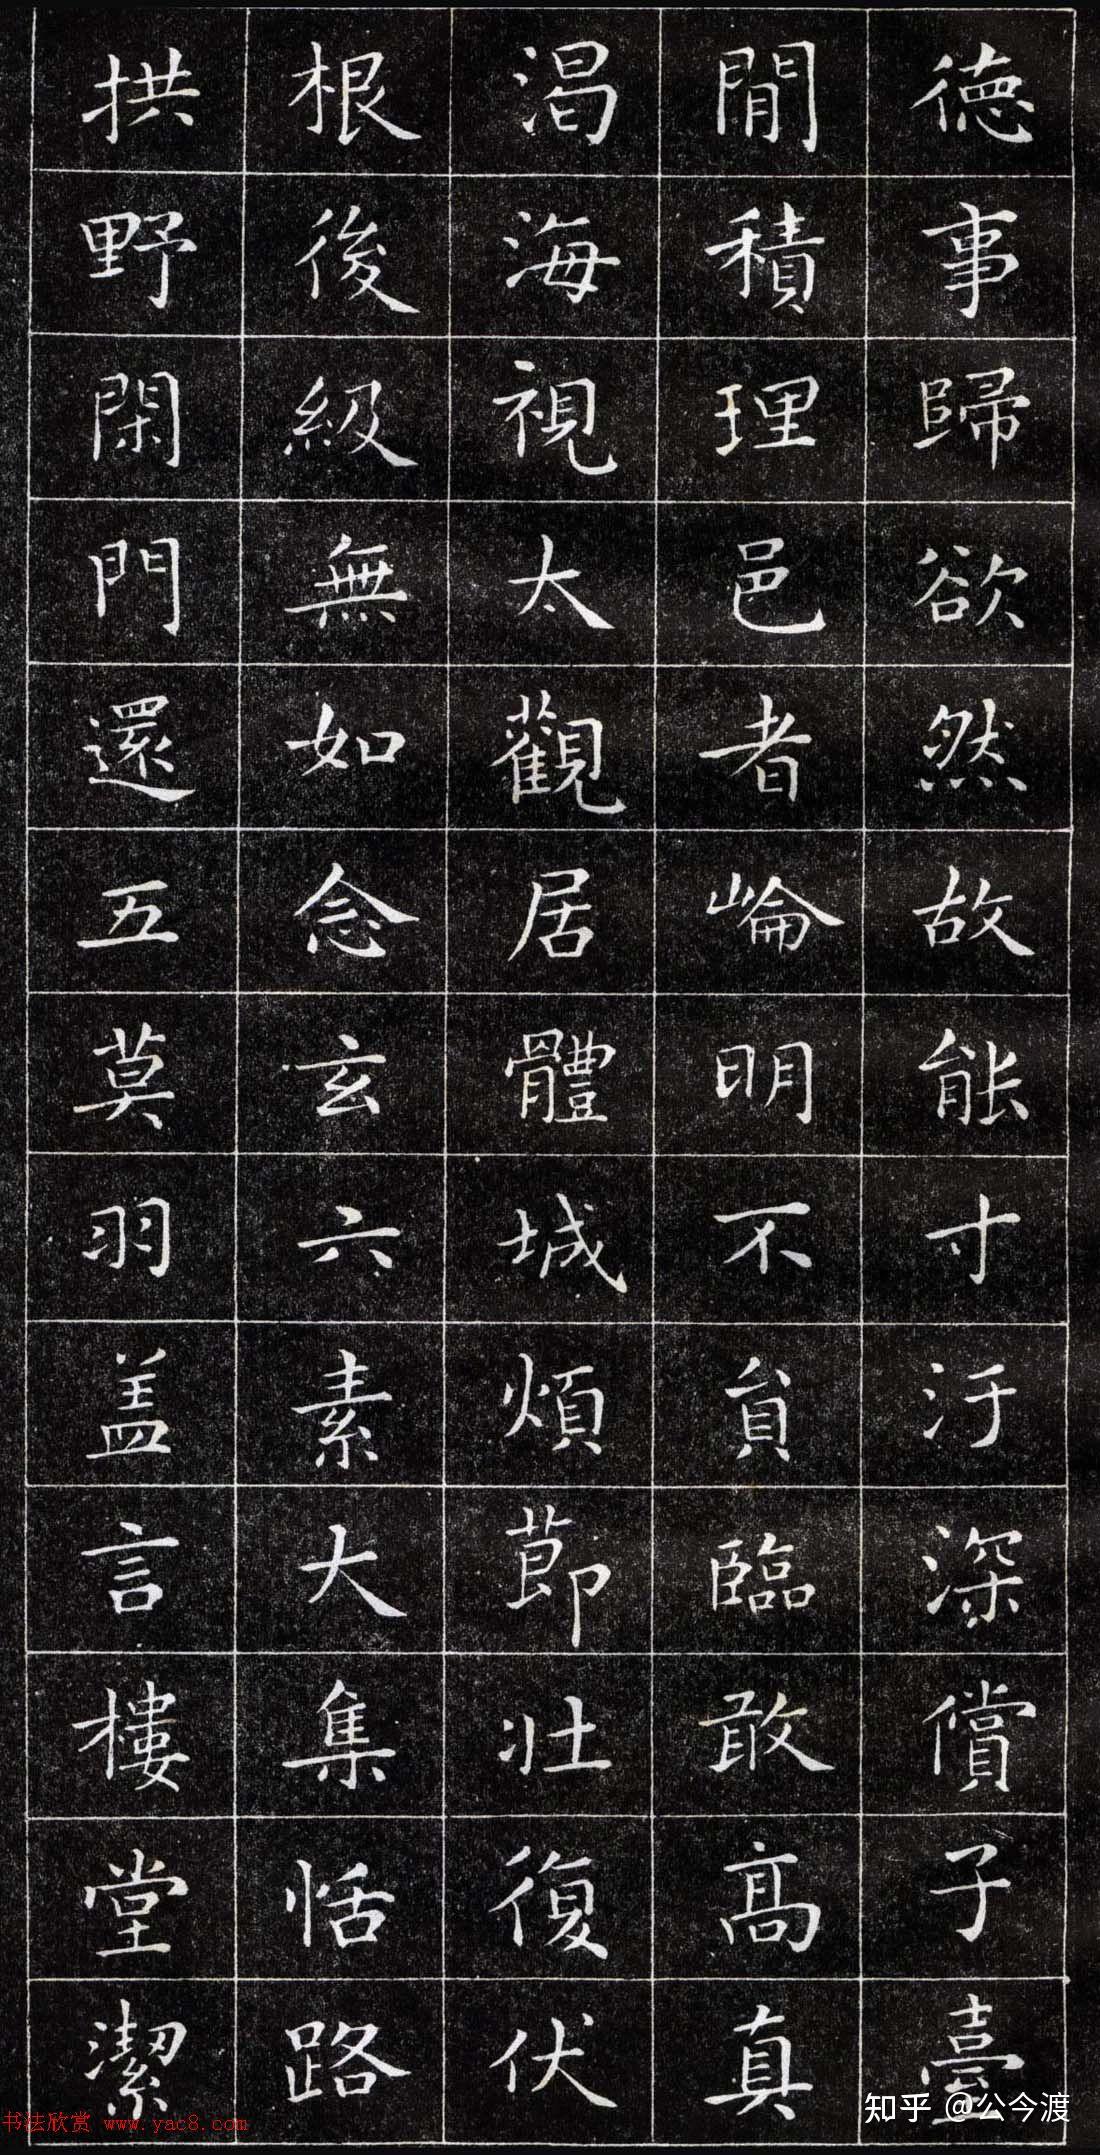 德事歸欲然故能寸汙深償子臺
閒積理邑者崘明不貟臨敢髙真
渴海視太觀居體城煩莭壯復伏
根後級無如念玄六素大集恬路
拱野閑門還五莫羽盖言樓堂潔
书法欣赏 www.yac8.com
知乎 @公今渡